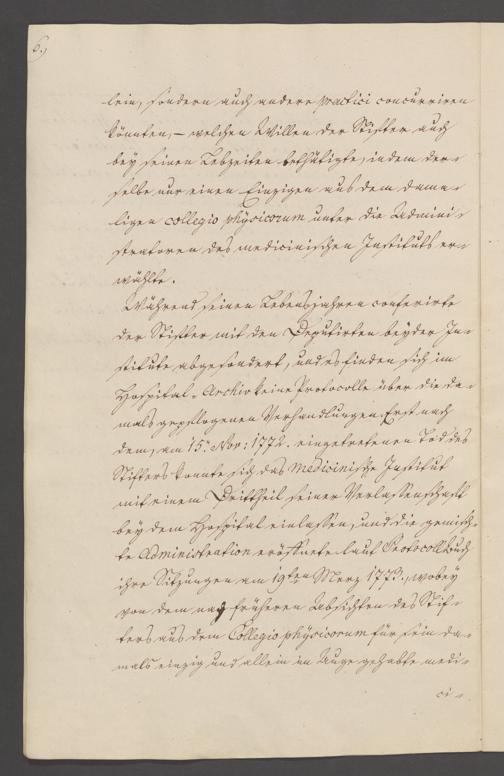 6.)
lein, sondern auch andere practici concurriren
könnten, – welchen Willen der Stifter auch
bey seinen Lebzeiten bethätigte, indem der-
selbe nur einen Einzigen aus dem dama-
ligen collegio physicorum unter die Admini-
stratoren des medicinischen Instituts er-
wählte.
Während seinen Lebensjahren conferirte
der Stifter mit den Deputirten beyder In-
stitute abgesondert, und es finden sich im
Hospital-Archiv keine Protocolle über die da-
mals gepflogenen Verhandlungen. Erst nach
dem, am 15. Nov: 1772. eingetretenen Tod des
Stifters konnte sich das medicinische Institut
mit einem Drittheil seiner Verlassenschaft
bey dem Hospital einlassen, und die gemisch-
te Administration eröffnete laut Protocoll Buch
ihre Sitzungen am 19ten Merz 1773., wobey
von dem früheren Absichten des Stif-
ters aus dem Collegio physicorum für sein da-
mals einzig und allein im Auge gehabte medi-
ci-